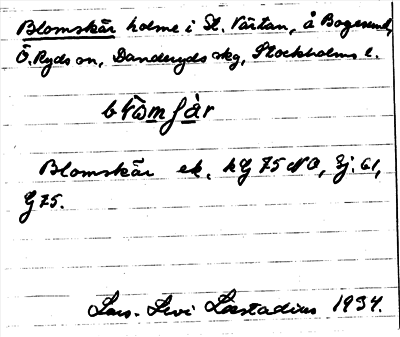 Blomskär holme i St. Värtan, å Bogesund,
Ö. Ryds sn, Danderyds skg, Stockholms l.
Blomskär ek. hG 75 NO, Ej. 61,
G 75.
Lars-Levi Læstadius 1934.